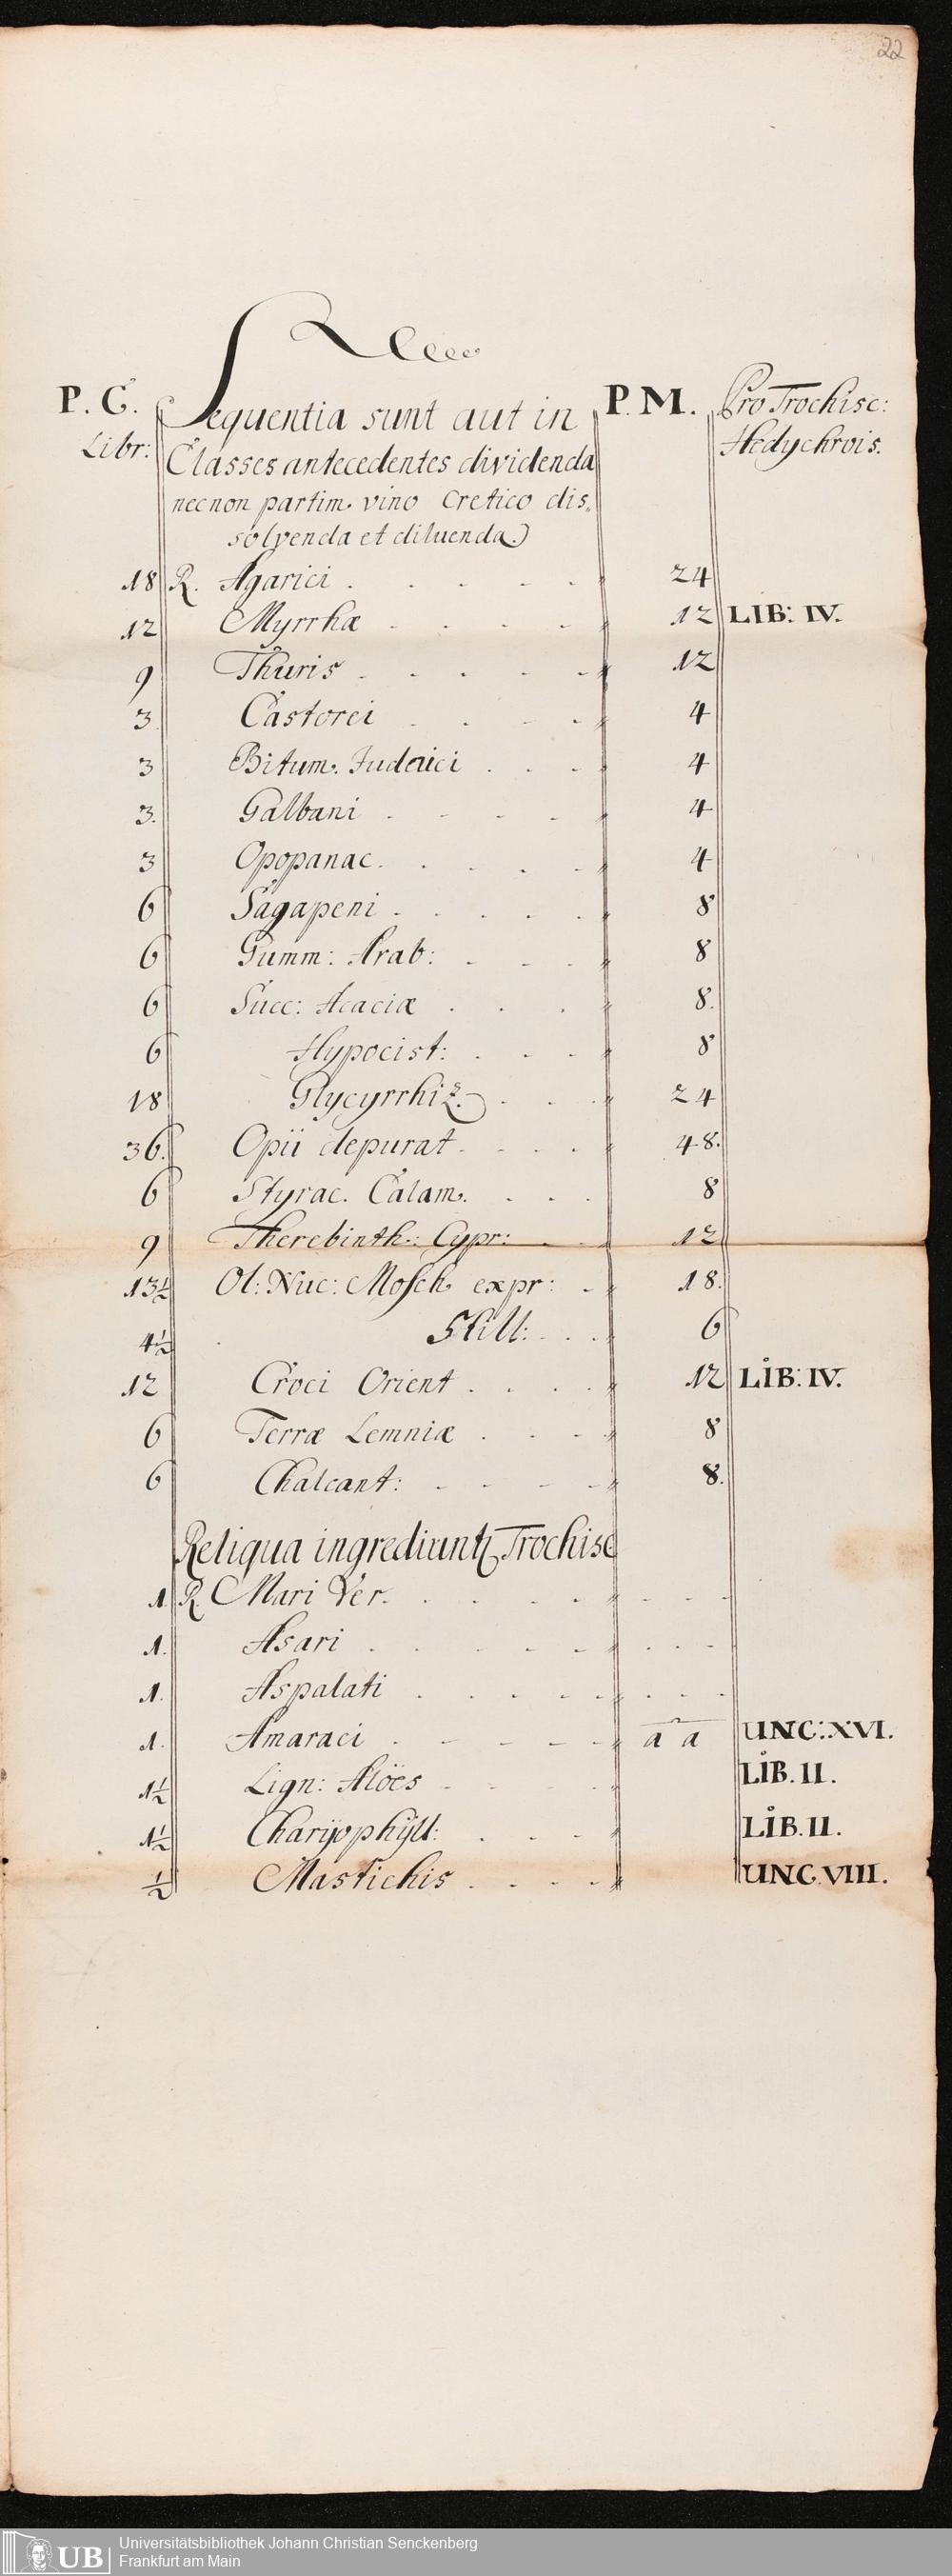 22
P. G. Sequentia sunt aut in P. M. Pro Trochisc:
Libr: Classes antecedentes dividenda Hedychrois.
necnon partim. vino Cretico dis.
solvenda et diluenda.)
18 R. Agarici . . . . . 24
12 Myrrhæ . . . . 12 LIB: IV.
9 Thuris . . . . . 12
3 Castorei . . . . 4
3 Bitum. Judaici . . . 4
3. Galbani . . . . 4
3 Opopanac. . . . . 4
6 Sagapeni . . . . . 8
6 Gumm: Arab: . . . 8
6 Succ: Acaciæ . . . 8.
6 Hypocist: . . . 8
18 Glycyrrhiz. . . . 24
36. Opii depurat. . . . . 48.
6 Styrac. Calam. . . . 8
9 Therebinth: Cypr: . . 12
13½ Ol: Nuc: Mosch expr: . 18.
4½ Still: . . . 6
12 Croci Orient . . . . 12 LIB: IV.
6 Terræ Lemniæ . . . 8
6 Chalcant: . . . . 8.
Reliqua ingrediunt Trochisc
1. R. Mari Ver. . . . . . . . .
1. Asari . . . . . . . .
1. Aspalati . . . . . . . .
1. Amaraci . . . . a a UNC: XVI.
1½ Lign: Alöes . . . . LIB. II.
1½ Charÿophÿll: . . . LIB. II.
½ Mastichis . . . . UNC. VIII.
UB
Universitätsbibliothek Johann Christian Senckenberg
Frankfurt am Main